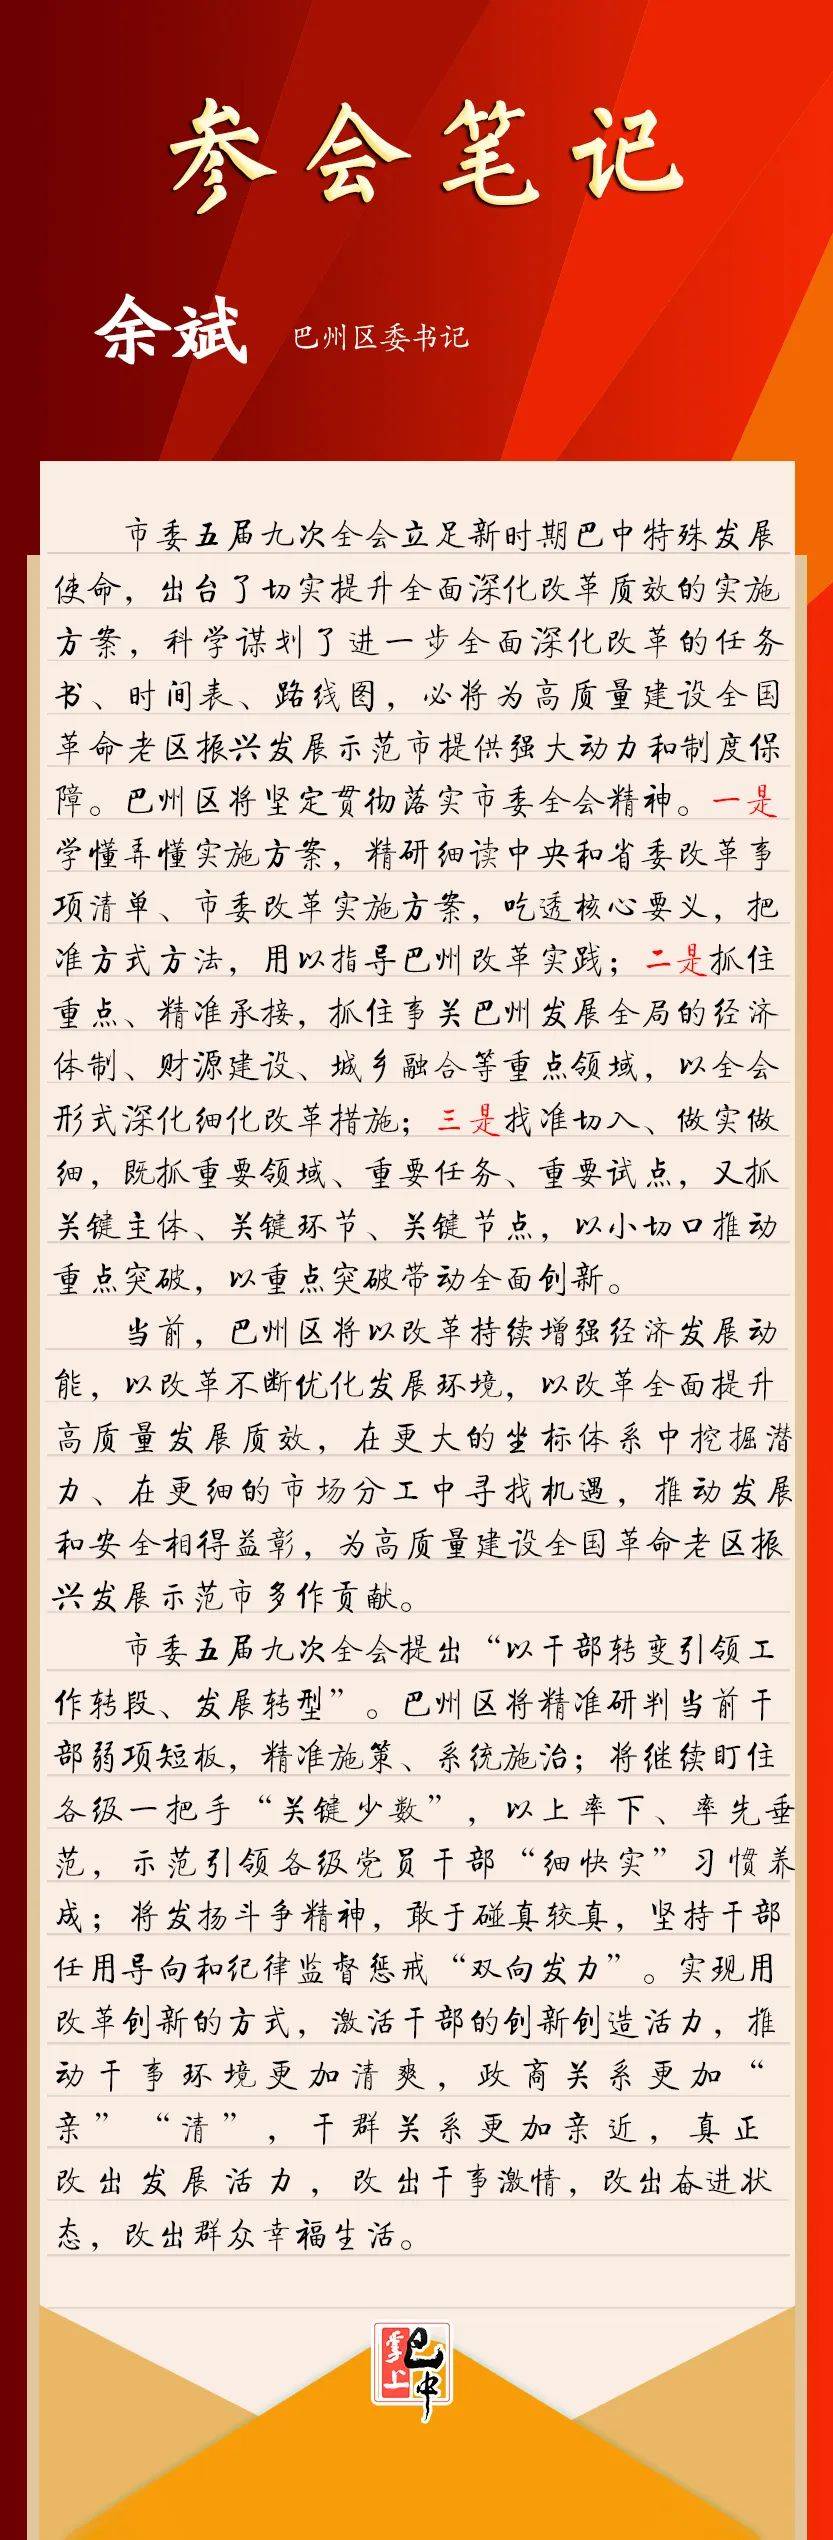 参会笔记
余斌 巴州区委书记
市委五届九次全会立足新时期巴中特殊发展
使命，出台了切实提升全面深化改革质效的实施
方案，科学谋划了进一步全面深化改革的任务
书、时间表、路线图，必将为高质量建设全国
革命老区振兴发展示范市提供强大动力和制度保
障。巴州区将坚定贯彻落实市委全会精神。一是
学懂弄懂实施方案，精研细读中央和省委改革事
项清单、市委改革实施方案，吃透核心要义，把
准方式方法，用以指导巴州改革实践；二是抓住
重点、精准承接，抓住事关巴州发展全局的经济
体制、财源建设、城乡融合等重点领域，以全会
形式深化细化改革措施；三是找准切入、做实做
细，既抓重要领域、重要任务、重要试点，又抓
关键主体、关键环节、关键节点，以小切口推动
重点突破，以重点突破带动全面创新。
当前，巴州区将以改革持续增强经济发展动
能，以改革不断优化发展环境，以改革全面提升
高质量发展质效，在更大的坐标体系中挖掘潜
力、在更细的市场分工中寻找机遇，推动发展
和安全相得益彰，为高质量建设全国革命老区振
兴发展示范市多作贡献。
市委五届九次全会提出“以干部转变引领工
作转段、发展转型”。巴州区将精准研判当前干
部弱项短板，精准施策、系统施治；将继续盯住
各级一把手“关键少数”，以上率下、率先垂
范，示范引领各级党员干部“细快实”习惯养
成；将发扬斗争精神，敢于碰真较真，坚持干部
任用导向和纪律监督惩戒“双向发力”。实现用
改革创新的方式，激活干部的创新创造活力，推
动干事环境更加清爽，政商关系更加“
亲”“清”，干群关系更加亲近，真正
改出发展活力，改出干事激情，改出奋进状
态，改出群众幸福生活。
掌上巴中